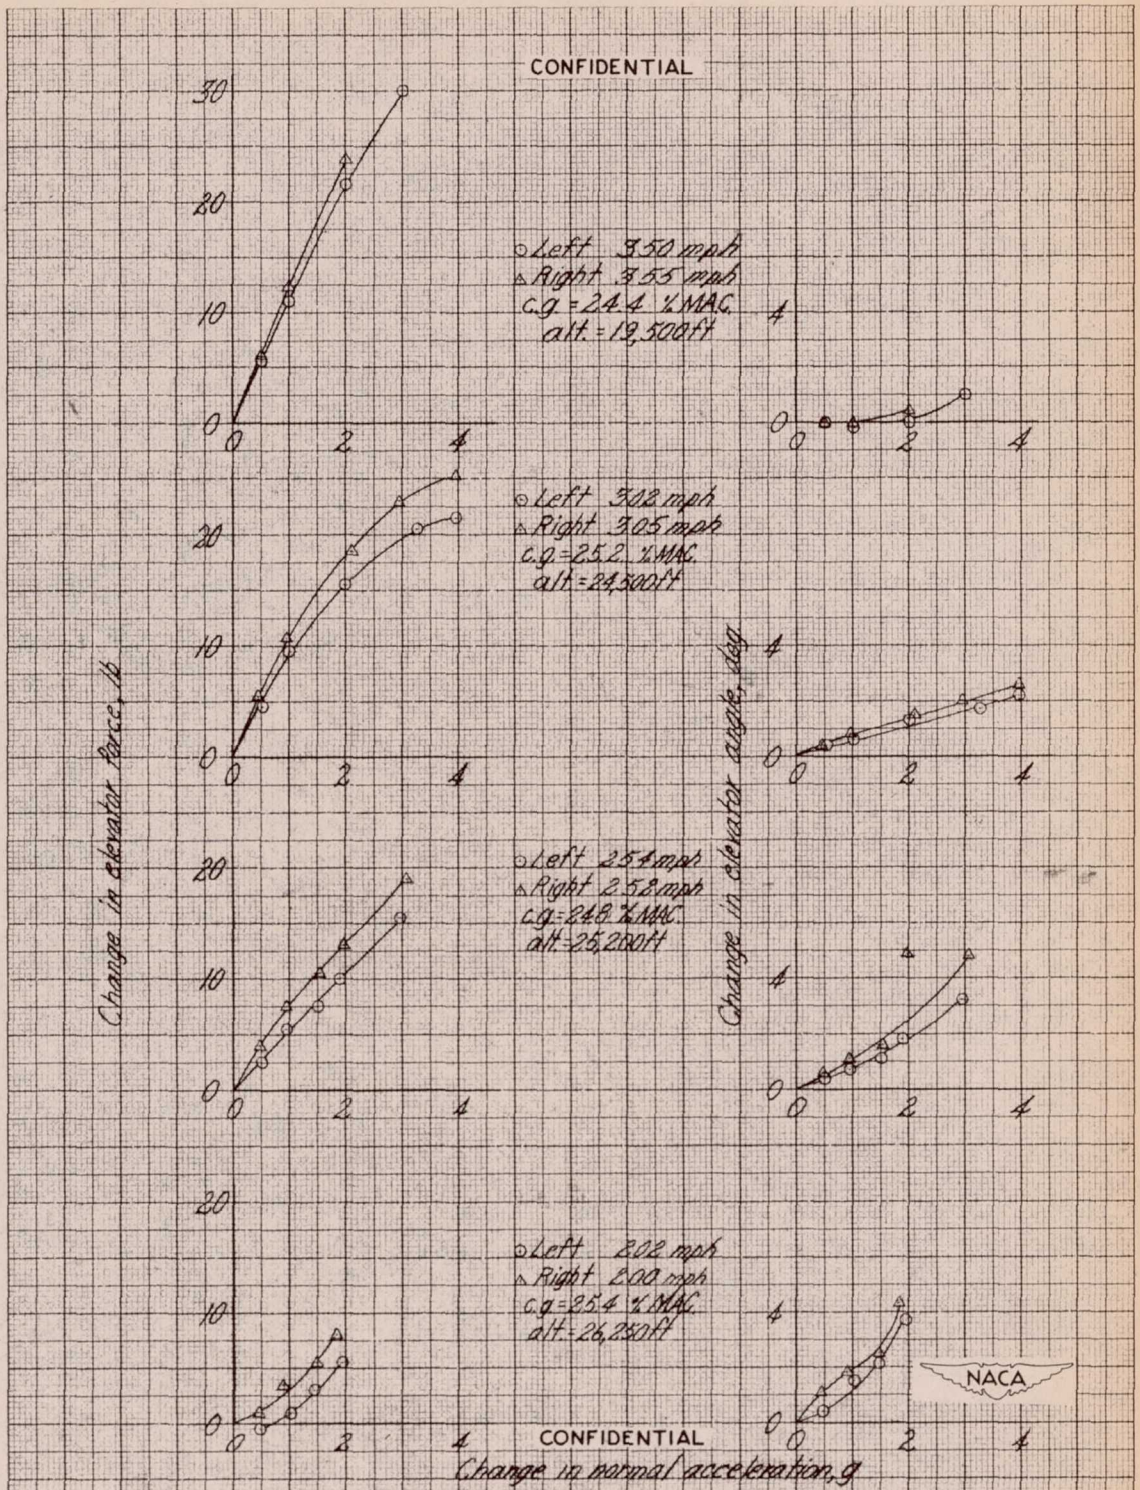 CONFIDENTIAL
30
20
10
0
0 2 4
○ Left 350 mph
△ Right 355 mph
c.g. = 24.4 % MAC.
alt. = 19,500 ft
4
0
0 2 4
20
10
0
0 2 4
○ Left 302 mph
△ Right 305 mph
c.g. = 25.2 % MAC.
alt. = 24,500 ft
4
0
0 2 4
Change in elevator force, lb
Change in elevator angle, deg
20
10
0
0 2 4
○ Left 254 mph
△ Right 252 mph
c.g. = 24.8 % MAC.
alt. = 25,200 ft
4
0
0 2 4
20
10
0
0 2 4
○ Left 202 mph
△ Right 200 mph
c.g. = 25.4 % MAC.
alt. = 26,250 ft
4
0
0 2 4
NACA
CONFIDENTIAL
Change in normal acceleration, g